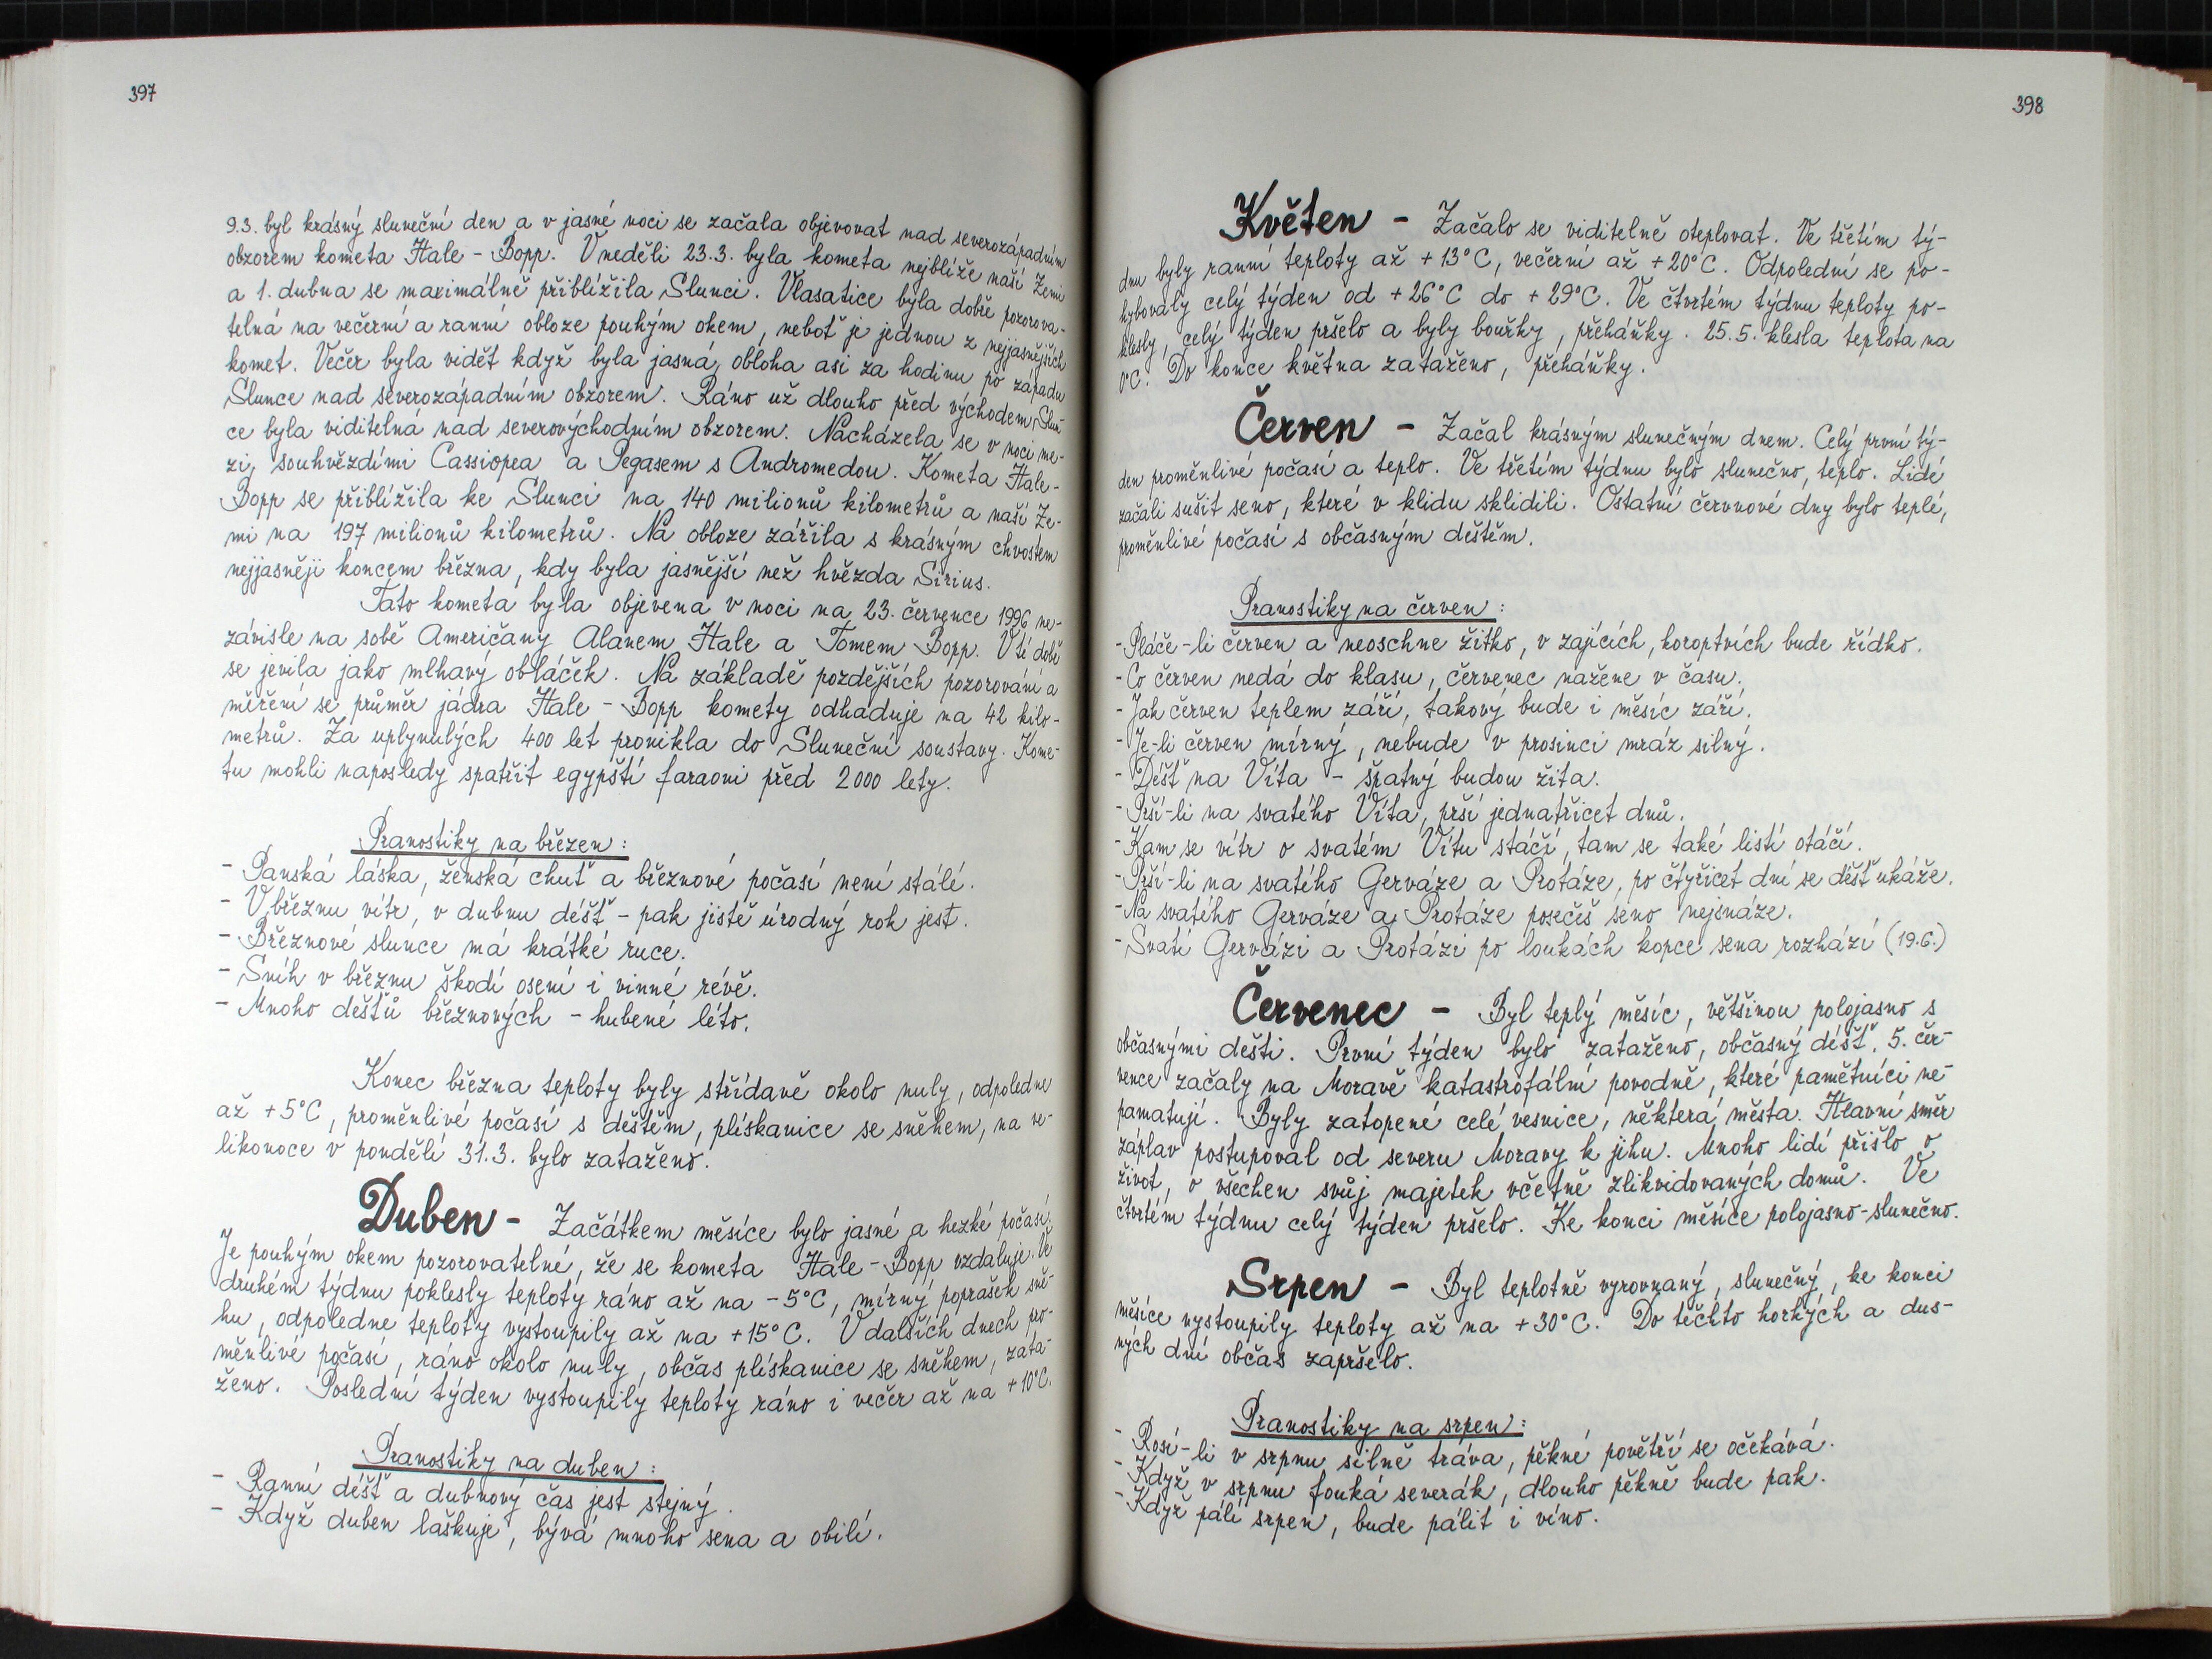 397
9.3. byl krásný sluneční den a v jasné noci se začala objevovat nad severozápadním
obzorem kometa Hale - Bopp. V neděli 23.3. byla kometa nejblíže naší Zemi
a 1. dubna se maximálně přiblížila Slunci. Vlasatice byla dobře pozorova-
telná na večerní a ranní obloze pouhým okem, neboť je jednou z nejjasnějších
komet. Večer byla vidět když byla jasná obloha asi za hodinu po západu
Slunce nad severozápadním obzorem. Ráno už dlouho před východem Slun-
ce byla viditelná nad severovýchodním obzorem. Nacházela se v noci me-
zi souhvězdími Cassiopea a Pegasem s Andromedou. Kometa Hale-
Bopp se přiblížila ke Slunci na 140 milionů kilometrů a naší Ze-
mi na 197 milionů kilometrů. Na obloze zářila s krásným chvostem
nejjasněji koncem března, kdy byla jasnější než hvězda Sirius.
Tato kometa byla objevena v noci na 23. července 1996 ne-
závisle na sobě Američany Alanem Hale a Tomem Bopp. V té době
se jevila jako mlhavý obláček. Na základě pozdějších pozorování a
měření se průměr jádra Hale - Bopp komety odhaduje na 42 kilo-
metrů. Za uplynulých 400 let pronikla do Sluneční soustavy. Kome-
tu mohli naposledy spatřit egyptští faraoni před 2000 lety.
Pranostiky na březen:
- Panská láska, ženská chuť a březnové počasí není stálé.
- V březnu vítr, v dubnu déšť - pak jistě úrodný rok jest.
- Březnové slunce má krátké ruce.
- Sníh v březnu škodí osení i vinné révě.
- Mnoho dešťů březnových - hubené léto.
Konec března teploty byly střídavě okolo nuly, odpoledne
až +5°C, proměnlivé počasí s deštěm, plískanice se sněhem, na ve-
likonoce v pondělí 31.3. bylo zataženo.
Duben - Začátkem měsíce bylo jasné a hezké počasí.
Je pouhým okem pozorovatelné, že se kometa Hale - Bopp vzdaluje. Ve
druhém týdnu poklesly teploty ráno až na -5°C, mírný poprašek sně-
hu, odpoledne teploty vystoupily až na +15°C. V dalších dnech pro-
měnlivé počasí, ráno okolo nuly, občas plískanice se sněhem, zata-
ženo. Poslední týden vystoupily teploty ráno i večer až na +10°C.
Pranostiky na duben:
- Ranní déšť a dubnový čas jest stejný.
- Když duben laškuje, bývá mnoho sena a obilí.
398
Květen - Začalo se viditelně oteplovat. Ve třetím tý-
dnu byly ranní teploty až +13°C, večerní až +20°C. Odpolední se po-
hybovaly celý týden od +26°C do +29°C. Ve čtvrtém týdnu teploty po-
klesly, celý týden pršelo a byly bouřky, přeháňky. 25.5. klesla teplota na
0°C. Do konce května zataženo, přeháňky.
Červen - Začal krásným slunečným dnem. Celý první tý-
den proměnlivé počasí a teplo. Ve třetím týdnu bylo slunečno, teplo. Lidé
začali sušit seno, které v klidu sklidili. Ostatní červnové dny bylo teplé,
proměnlivé počasí s občasným deštěm.
Pranostiky na červen:
- Pláče-li červen a neoschne žitko, v zajících, koroptvích bude řídko.
- Co červen nedá do klasu, červenec nažene v času.
- Jak červen teplem září, takový bude i měsíc září.
- Je-li červen mírný, nebude v prosinci mráz silný.
- Déšť na Víta - špatný budou žita.
- Prší-li na svatého Víta, prší jednatřicet dnů.
- Kam se vítr o svatém Vítu stáčí, tam se také listí otáčí.
- Prší-li na svatého Gerváze a Protáze, po čtyřicet dní se déšť ukáže.
- Na svatého Gerváze a Protáze posečeš seno nejsnáze.
- Svatí Gervázi a Protázi po loukách kopce sena rozhází (19.6.)
Červenec - Byl teplý měsíc, většinou polojasno s
občasnými dešti. První týden bylo zataženo, občasný déšť. 5. čer-
vence začaly na Moravě katastrofální povodně, které pamětníci ne-
pamatují. Byly zatopené celé vesnice, některá města. Hlavní směr
záplav postupoval od severu Moravy k jihu. Mnoho lidí přišlo o
život, o všechen svůj majetek včetně zlikvidovaných domů. Ve
čtvrtém týdnu celý týden pršelo. Ke konci měsíce polojasno-slunečno.
Srpen - Byl teplotně vyrovnaný, slunečný, ke konci
měsíce vystoupily teploty až na +30°C. Do těchto horkých a dus-
ných dní občas zapršelo.
Pranostiky na srpen:
- Rosí-li v srpnu silně tráva, pěkné povětří se očekává.
- Když v srpnu fouká severák, dlouho pěkně bude pak.
- Když pálí srpen, bude pálit i víno.